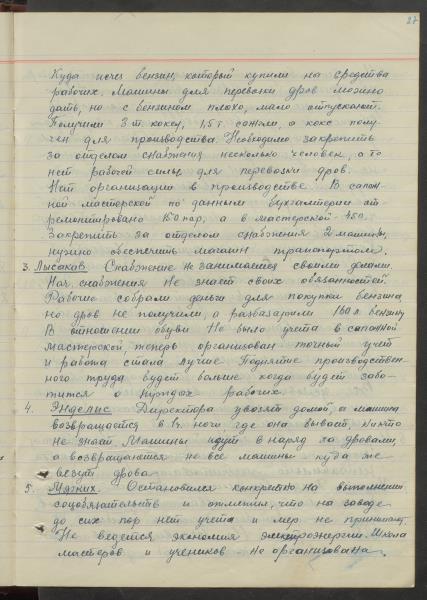 27
Куда исчез бензин, который купили на средства
рабочих. Машины для перевозки дров можно
дать, но с бензином плохо, мало отпускают.
Получили 3 т. коксу, 1,5 т сожгли, а кокс полу-
чен для производства. Необходимо закрепить
за отделом снабжения несколько человек, а то
нет рабочей силы для перевозки дров.
Нет организации в производстве. В сапож-
ной мастерской по данным бухгалтерии от-
ремонтировано 150 пар, а в мастерской 450.
Закрепить за отделом снабжения 2 машины,
нужно обеспечить магазин транспортом.
3. Лысаков Снабжение не занимается своими делами.
Нач. снабжения не знает своих обязанностей.
Рабочие собрали деньги для покупки бензина,
но дров не получили, а разбазарили бензину
В отношении обуви не было учета в сапожной
мастерской, теперь организован точный учет
и работа стала лучше Поднятие производствен-
ного труда будет больше когда будет забо-
тится о нуждах рабочих.
4. Энделис Директора увозят домой, а машина
возвращается в ночи где она бывает, никто
не знает. Машины идут в наряд за дровами,
а возвращаются не все машины куда же
везут дрова
5. Мягких. Остановился конкретно на выполнении
соцобязательств и отметил, что на заводе
до сих пор нет учета и мер не принимают.
Не ведется экономия электроэнергии. Школа
мастеров и учеников - не организована.